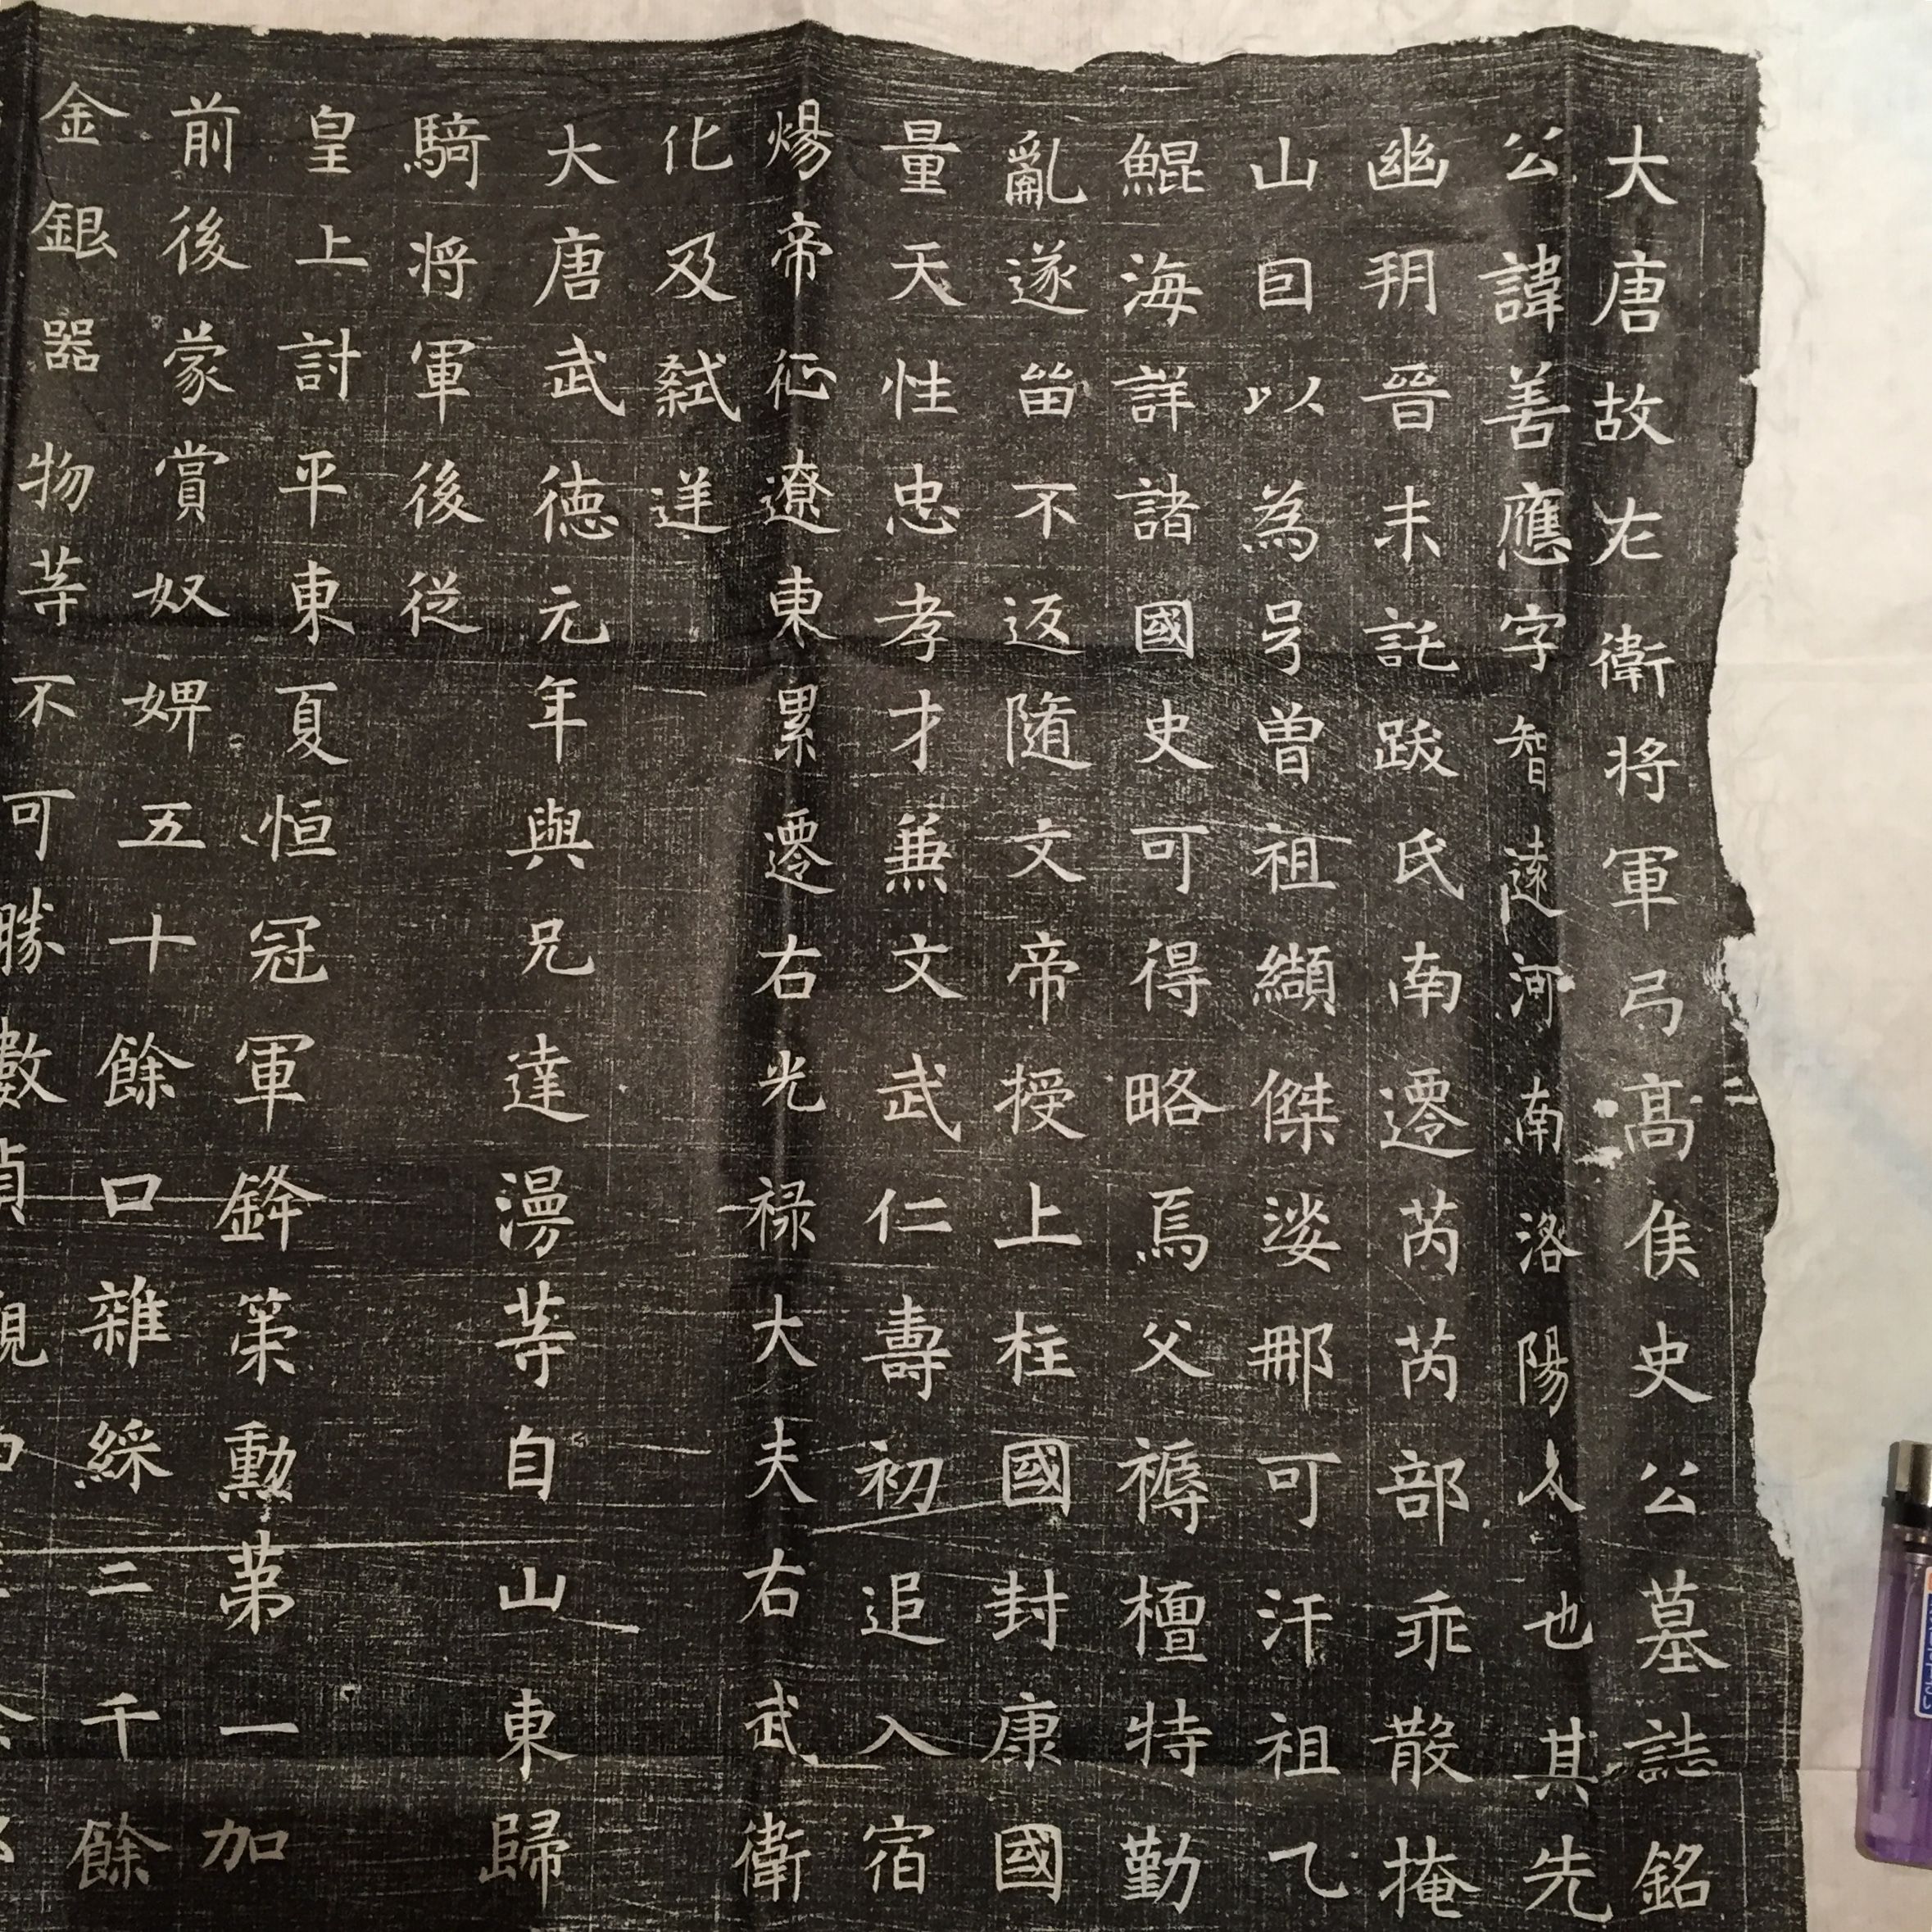 大唐故左衛将軍弓高侯史公墓誌銘
公諱善應字智遠河南洛陽人也其先
幽朔晉末託跋氏南遷芮芮部乖散掩
山自以為号曽祖纈傑娑那可汗祖乙
鯤海詳諸國史可得略焉父褥檀特勤
亂遂留不返隨文帝授上柱國封康國
量天性忠孝才兼文武仁壽初追入宿
煬帝征遼東累遷右光禄大夫右武衛
化及弑逆
大唐武徳元年與兄達漫等自山東歸
騎将軍後從
皇上討平東夏恒冠軍鋒策勳第一加
前後蒙賞奴婢五十餘口雜綵二千餘
金銀器物等不可勝數貞觀